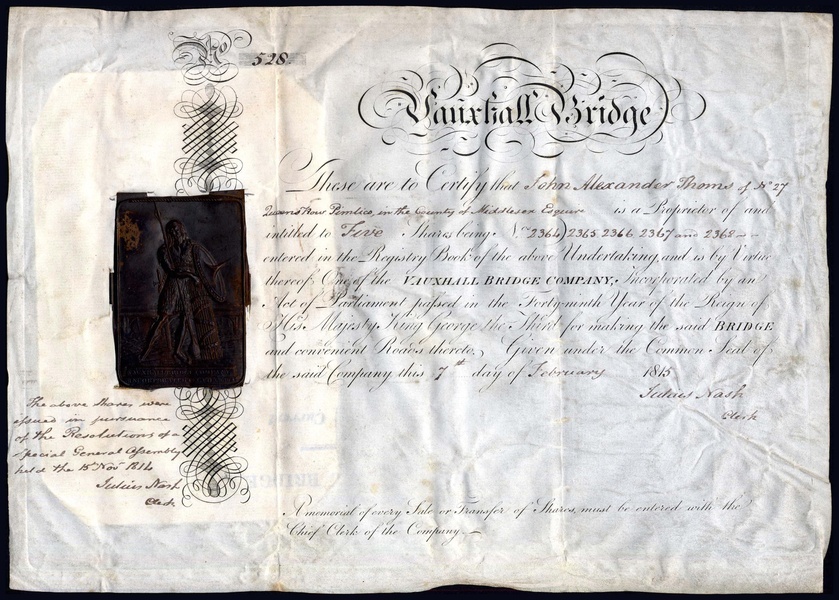 No 528.
Vauxhall Bridge
These are to Certify that John Alexander Thoms of No 27
Queens Row Pimlico, in the County of Middlesex Esquire is a Proprietor of and
intitled to Five Shares being Nos 2364, 2365 2366, 2367 and 2368
entered in the Registry Book of the above Undertaking, and is by Virtue
thereof One of the VAUXHALL BRIDGE COMPANY, Incorporated by an
Act of Parliament passed in the Forty-ninth Year of the Reign of
His Majesty King George the Third for making the said BRIDGE
and convenient Roads thereto. Given under the Common Seal of
the said Company this 7th day of February 1815
Julius Nash
Clerk
The above Shares were
issued in pursuance
of the Resolutions of a
Special General Assembly
held the 15 Nov 1814
Julius Nash
Clerk
A memorial of every Sale or Transfer of Shares, must be entered with the
Chief Clerk of the Company.